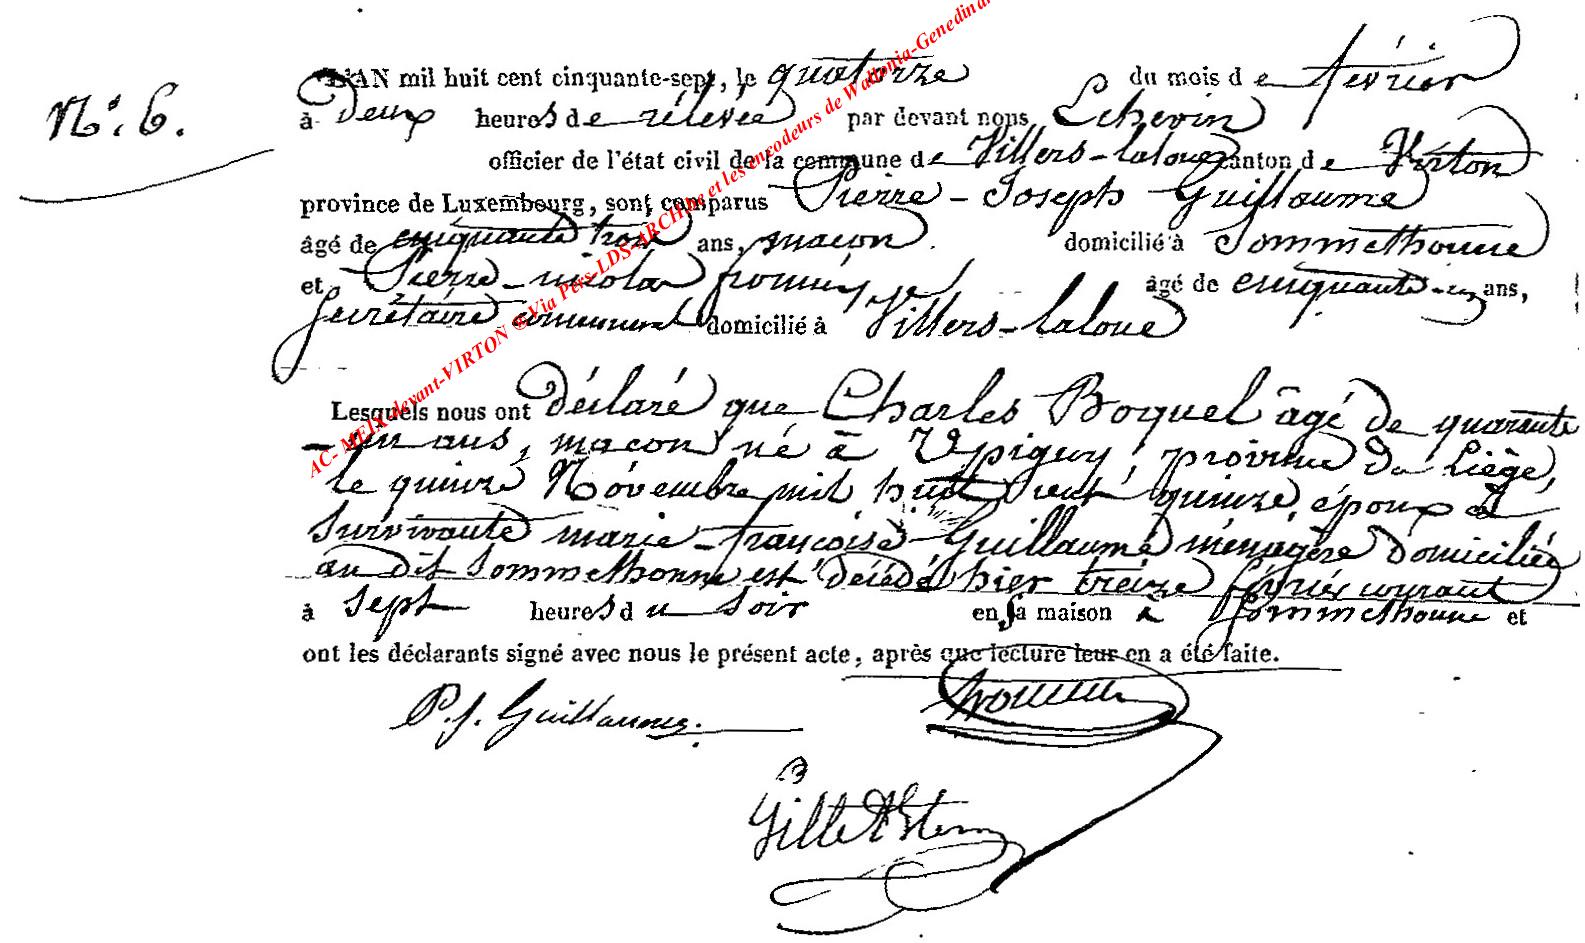 N.º 6.
L'AN mil huit cent cinquante-sept, le quatorze du mois de février
à deux heures de rélevée par devant nous Echevin
officier de l'état civil de la commune de Villers-laloue canton de Virton
province de Luxembourg, sont comparus Pierre-Joseph Guillaume
âgé de cinquante trois ans, macon. domicilié à Sommethonne
et Pierre-nicolas âgé de cinquante-un ans,
Secrétaire communal domicilié à Villers-laloue
Lesquels nous ont déclaré que Charles Boquel âgé de quarante
-un ans, macon né à province de Liège,
le quinze Novembre mil huit cent quinze, époux à
survivante marie-françoise Guillaume ménagère domiciliée
au dit Sommethonne est décédé hier treize février courant
à sept heures du soir en sa maison à Sommethonne et
ont les déclarants signé avec nous le présent acte, après que lecture leur en a été faite.
P. J. Guillaume.
Gille
AC- MEIX-devant-VIRTON ®Via Pers-LDS-ARCHbe et les encodeurs de Wallonia-Genedinan